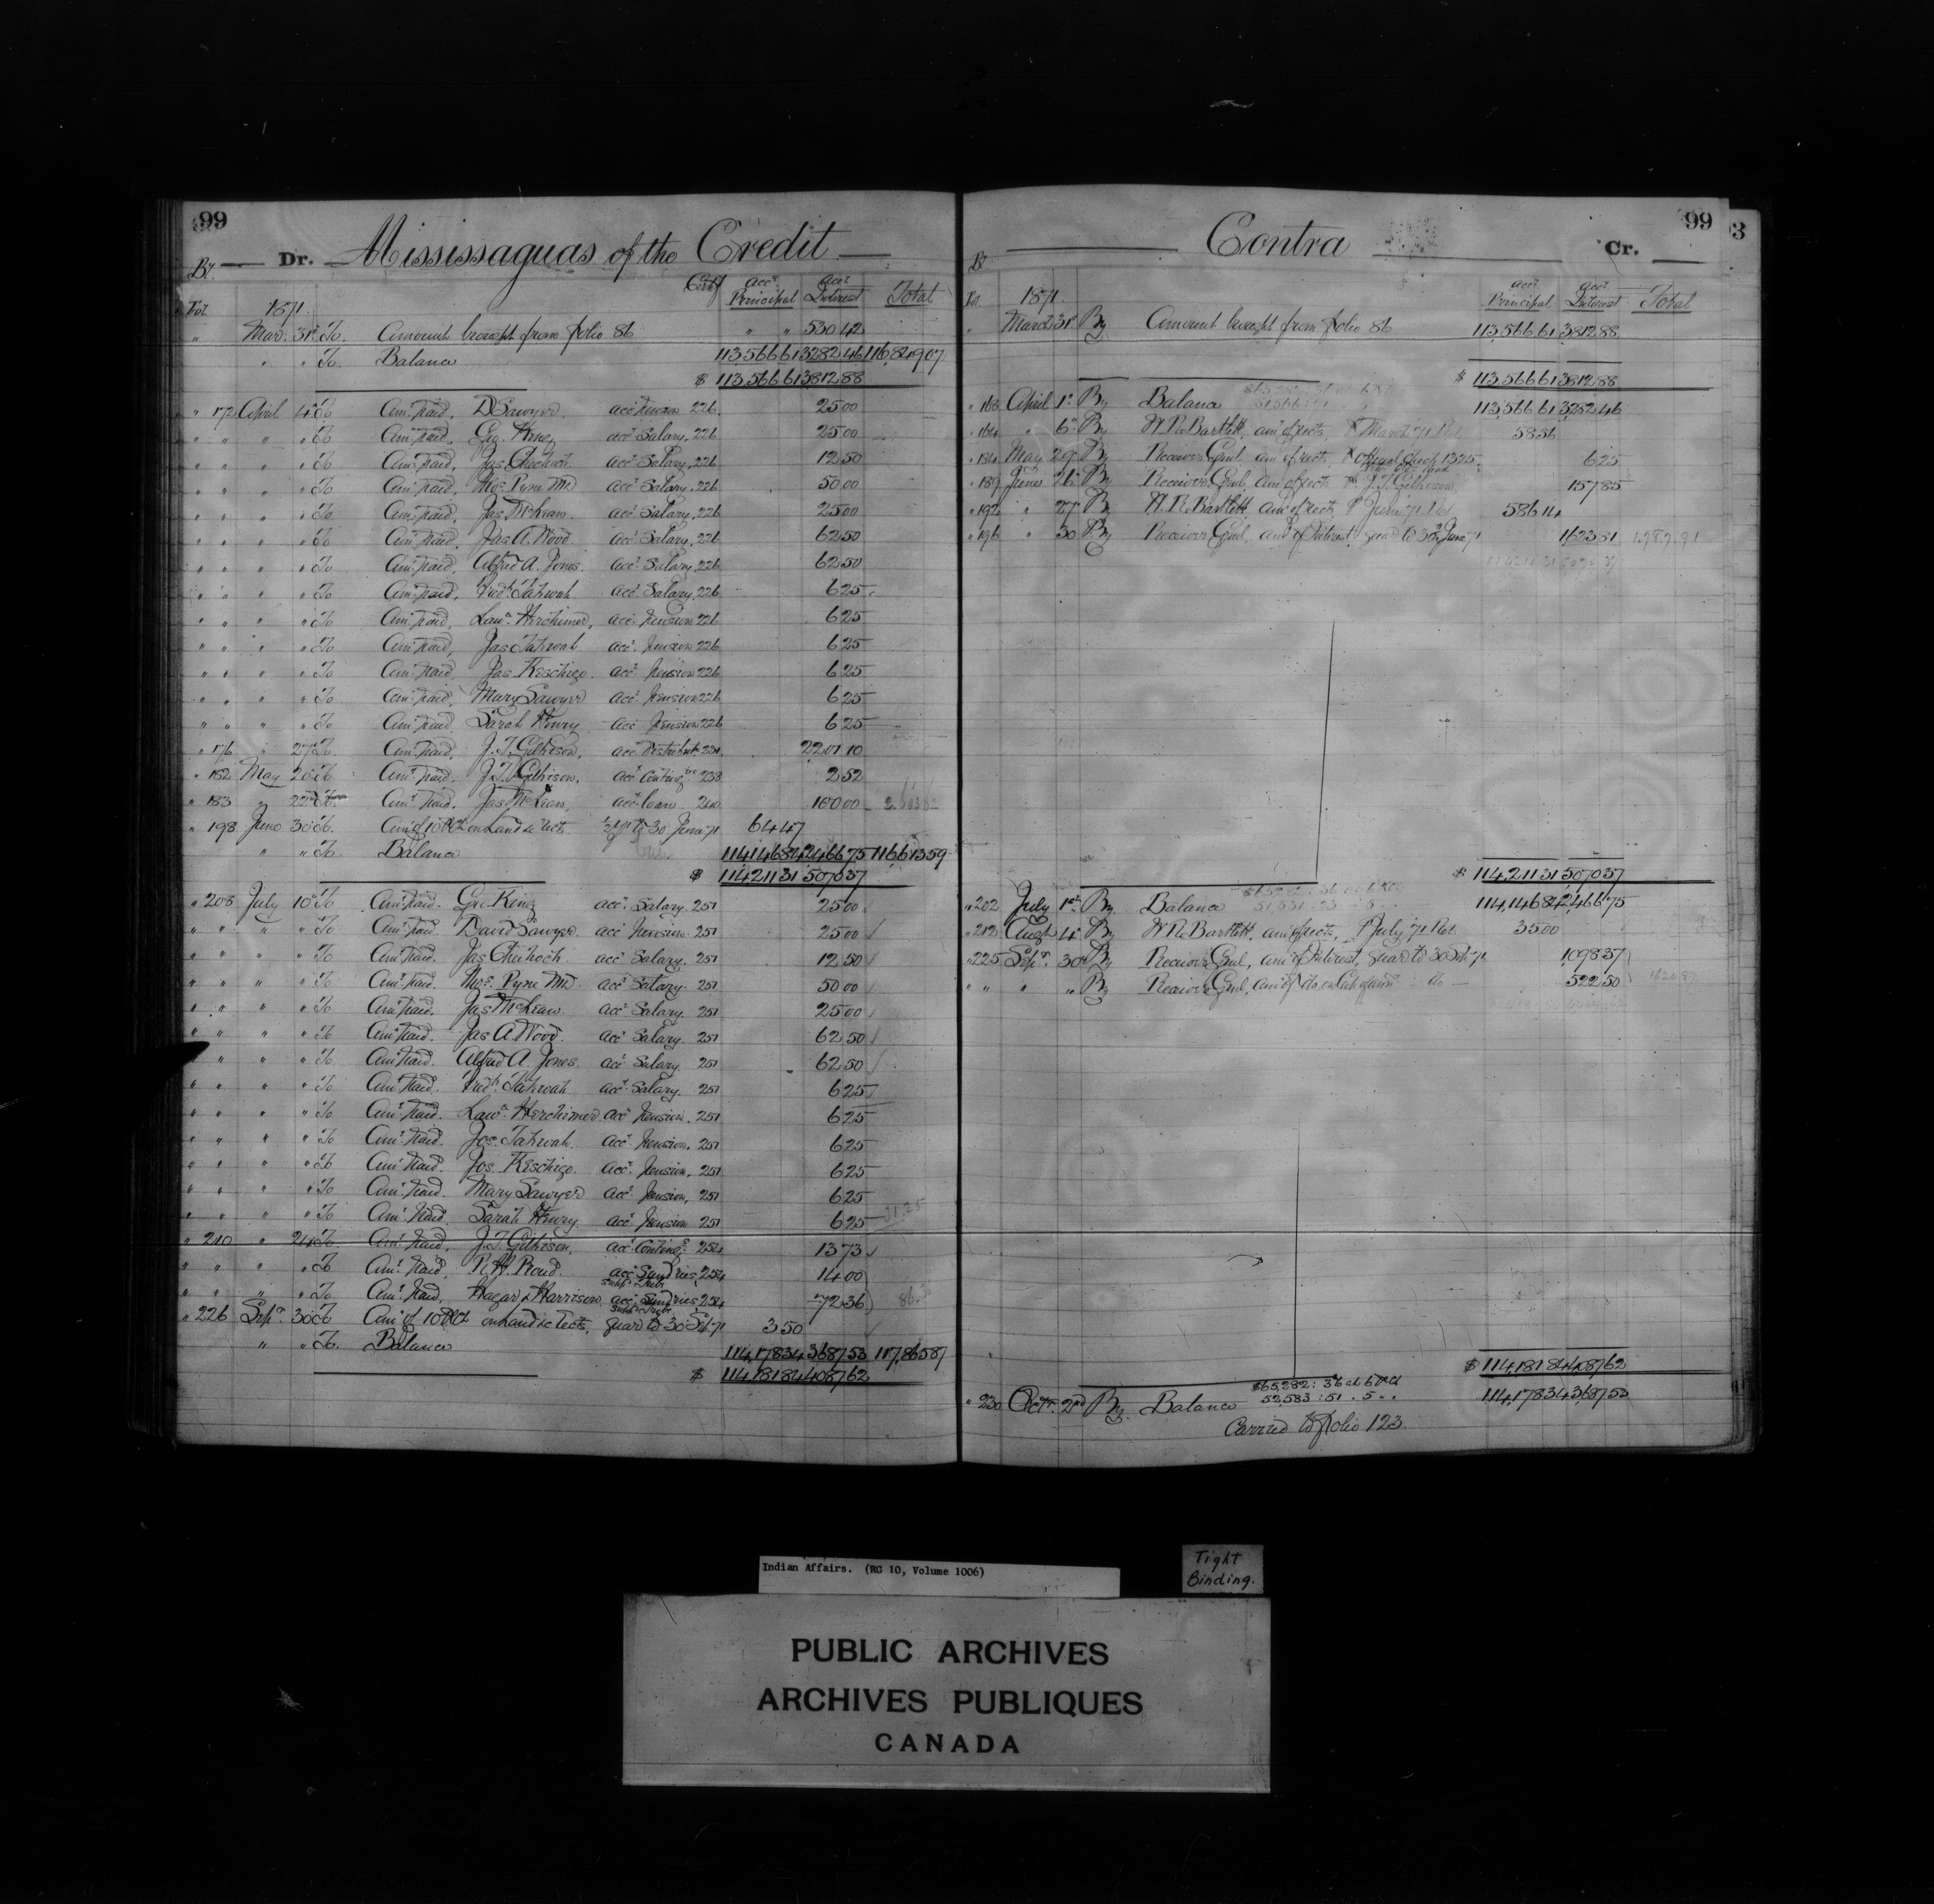 99
Dr. Mississaguas of the Credit
By Certf Acct Principal Acct Interest Total
Fol 1871
" Mar. 31st To Amount brought from folio 86 " " 530 42
" " To Balance 113,566 61 3282 46 116,849 07
$ 113,566 61 3812 88
" 172 April 4th To Amt paid, D Sawyer acct Pension 226 25 00
" " " " To Amt paid, Geo. King acct Salary, 226 25 00
" " " " To Amt paid, Jas Chechock acct Salary, 226 12 50
" " " " To Amt paid, Thos. Pyne MD acct Salary, 226 50 00
" " " " To Amt paid, Jas McLean acct Salary, 226 25 00
" " " " To Amt paid, Jas A. Wood acct Salary, 226 62 50
" " " " To Amt paid, Alfred A. Jones acct Salary, 226 62 50
" " " " To Amt paid, Fredk Tahwah acct Salary, 226 6 25
" " " " To Amt paid, Lawe Herchimer, acct Pension 226 6 25
" " " " To Amt paid, Jas Tahwah acct Pension 226 6 25
" " " " To Amt paid, Jas Keschego acct Pension 226 6 25
" " " " To Amt paid, Mary Sawyer acct Pension 226 6 25
" " " " To Amt paid Sarah Henry acct Pension 226 6 25
" 176 " 27th To Amt paid, J. T. Gilkison, acct Distribute 2201 10
" 182 May 20th To Amt paid, J. T. Gilkison, acct Conting 238 2 52
" 183 " 22nd To Amt paid, Jas McLean, acct loan 240 100 00 2,603 62
" 198 June 30th To Amt of 10 P Ct on Land &c Rects ½ yr to 30 June 71 64 47
" " To Balance 114,146 84 2466 75 116,613 59
$ 114,211 31 5070 37
" 208 July 10th To Amt paid, Geo King acct Salary 251 25 00
" " " " To Amt paid, David Sawyer acct Pension 251 25 00
" " " " To Amt paid, Jas Chechock acct Salary 251 12 50
" " " " To Amt paid, Thos. Pyne MD acct Salary 251 50 00
" " " " To Amt paid, Jas McLean acct Salary 251 25 00
" " " " To Amt paid, Jas A. Wood acct Salary 251 62 50
" " " " To Amt paid, Alfred A. Jones acct Salary 251 62 50
" " " " To Amt paid, Fredk Tahwah acct Salary 251 6 25
" " " " To Amt paid, Lawe Herchimer acct Pension. 251 6 25
" " " " To Amt paid, Jos. Tahwah acct Pension. 251 6 25
" " " " To Amt paid, Jos. Keschego acct Pension. 251 6 25
" " " " To Amt paid, Mary Sawyer acct Pension, 251 6 25
" " " " To Amt paid, Sarah Henry acct Pension 251 6 25
" 210 " 24th To Amt paid, J. T. Gilkison, acct Conting 254 13 73
" " " " To Amt paid, acct Sundries 254 14 00
" " " " To Amt paid, Hagar & Harrison acct Sundries 254 72 36
" 226 Sepr. 30th To Amt of 10 P Ct on Land &c Rects, quar to 30 Sept 71 3 50
" " To Balance 114,178 34 3687 53 117,865 87
$ 114,181 84 4087 62
99
93
Contra Cr.
By Acct Principal Acct Interest Total
Fol 1871
" March 31st By Amount brought from folio 86 113,566 61 3812 88
$ 113,566 61 3812 88
" 163 April 1st By Balance 113,566 61 3282 46
" 164 " 6th By W. R. Bartlett, amt of rects, P March 71 Ret 58 56
" 184 May 29 By Receiver Genl, amt of rect, P Offical Cheqe 1325 6 25
" 189 June 26 By Receiver Genl, amt of rect P J. T. Gilkison 157 85
" 192 " 27 By W. R. Bartlett amt of rects P June 71 Ret 586 14
" 196 " 30 By Receiver Genl, amt of Interest, quar to 30th June 71 1623 81 1,787.91
$ 114,211 31 5070 37
" 202 July 1st By Balance 114,146 84 2466 75
" 212 Augt 4th By W. R. Bartlett, amt of rects, P July 71 Ret 35 00
" 225 Sepr. 30th By Receiver Genl, amt of Interest, quar to 30 Sept 71 1098 37
" " " " By Receiver Genl, amt of do do 522 50
$ 114,181 84 4087 62
$65,282 : 36 at 6 P Ct
52,583 : 51 . 5 . .
" 230 Octr. 2nd By Balance 114,178 34 3,687 53
Carried to folio 123.
Indian Affairs. (RG 10, Volume 1006)
Tight Binding.
PUBLIC ARCHIVES
ARCHIVES PUBLIQUES
CANADA